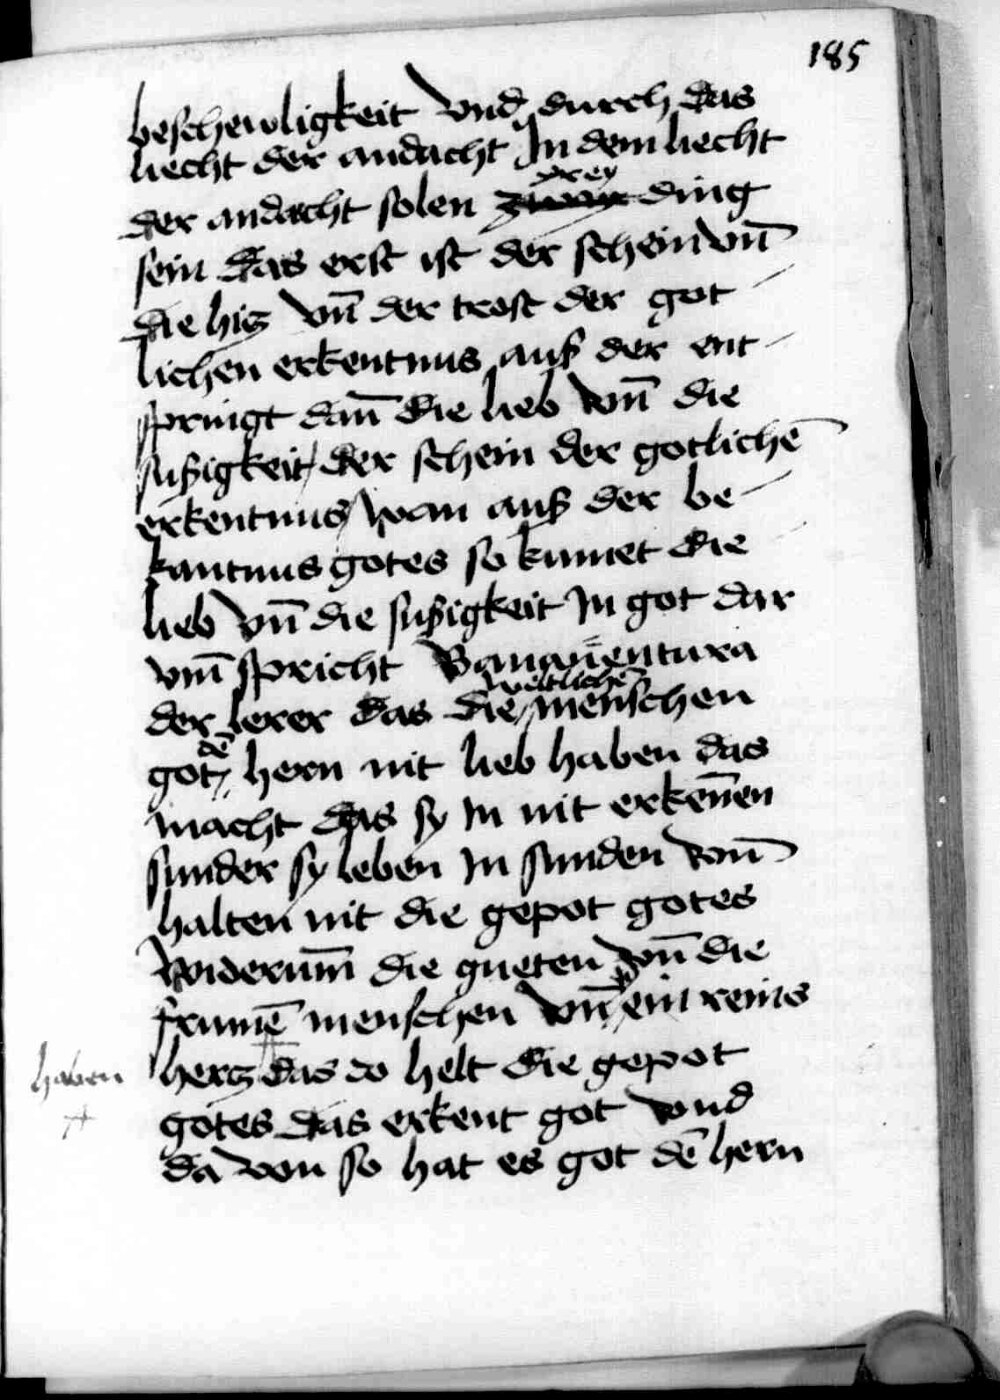 185
beschewligkeit vnd durch das
liecht der andacht In dem liecht
der andacht solen drey ding
sein das erst ist der schein vn̄
die hitz vn̄ der trost der got
lichen erkentnus auß der ent
springt dan̄ die lieb vn̄ die
sußigkeit der schein der gotlichē
erkentnus wan auß der be
kantnus gotes so kumet die
lieb vn̄ die sußigkeit In got dar
vm̄ spricht Bonauentura
der lerer das die weltlichē menschen
got dē hern nit lieb haben das
macht das sy In nit erkēnen
sunder sy leben In sunden vnn̄
halten nit die gepot gotes
widerum̄ die gueten vnn̄ die
frumē menschen vn̄ ein reins
haben hertz das do helt die gepot
gotes das erkent got vnd
da von so hat es got dē hern